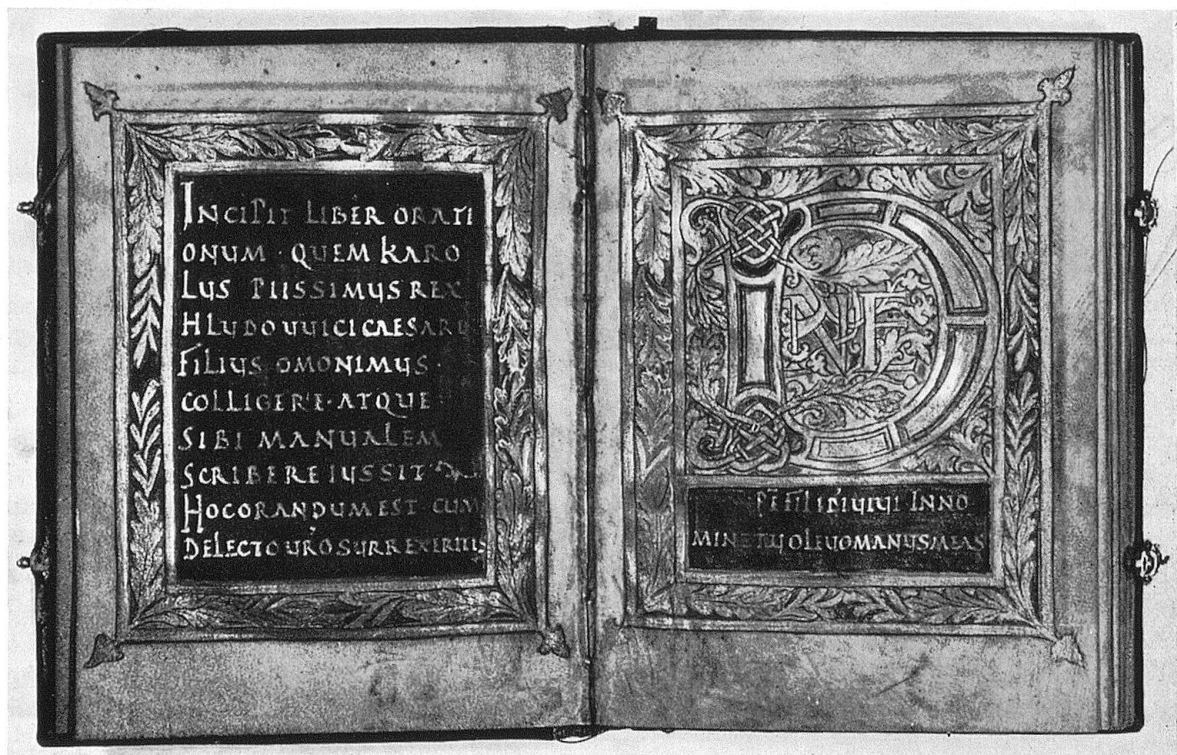 INCIPIT LIBER ORATI
ONUM · QUEM KARO
LUS PIISSIMUS REX
HLUDOUUICI CAESARIS
FILIUS OMONIMUS ·
COLLIGERE · ATQUE
SIBI MANUALEM
SCRIBERE IUSSIT
HOC ORANDUM EST CUM
DE LECTO URO SURREXERITIS
DNE
FILI DI UIUI IN NO
MINE TUO LEUO MANUS MEAS